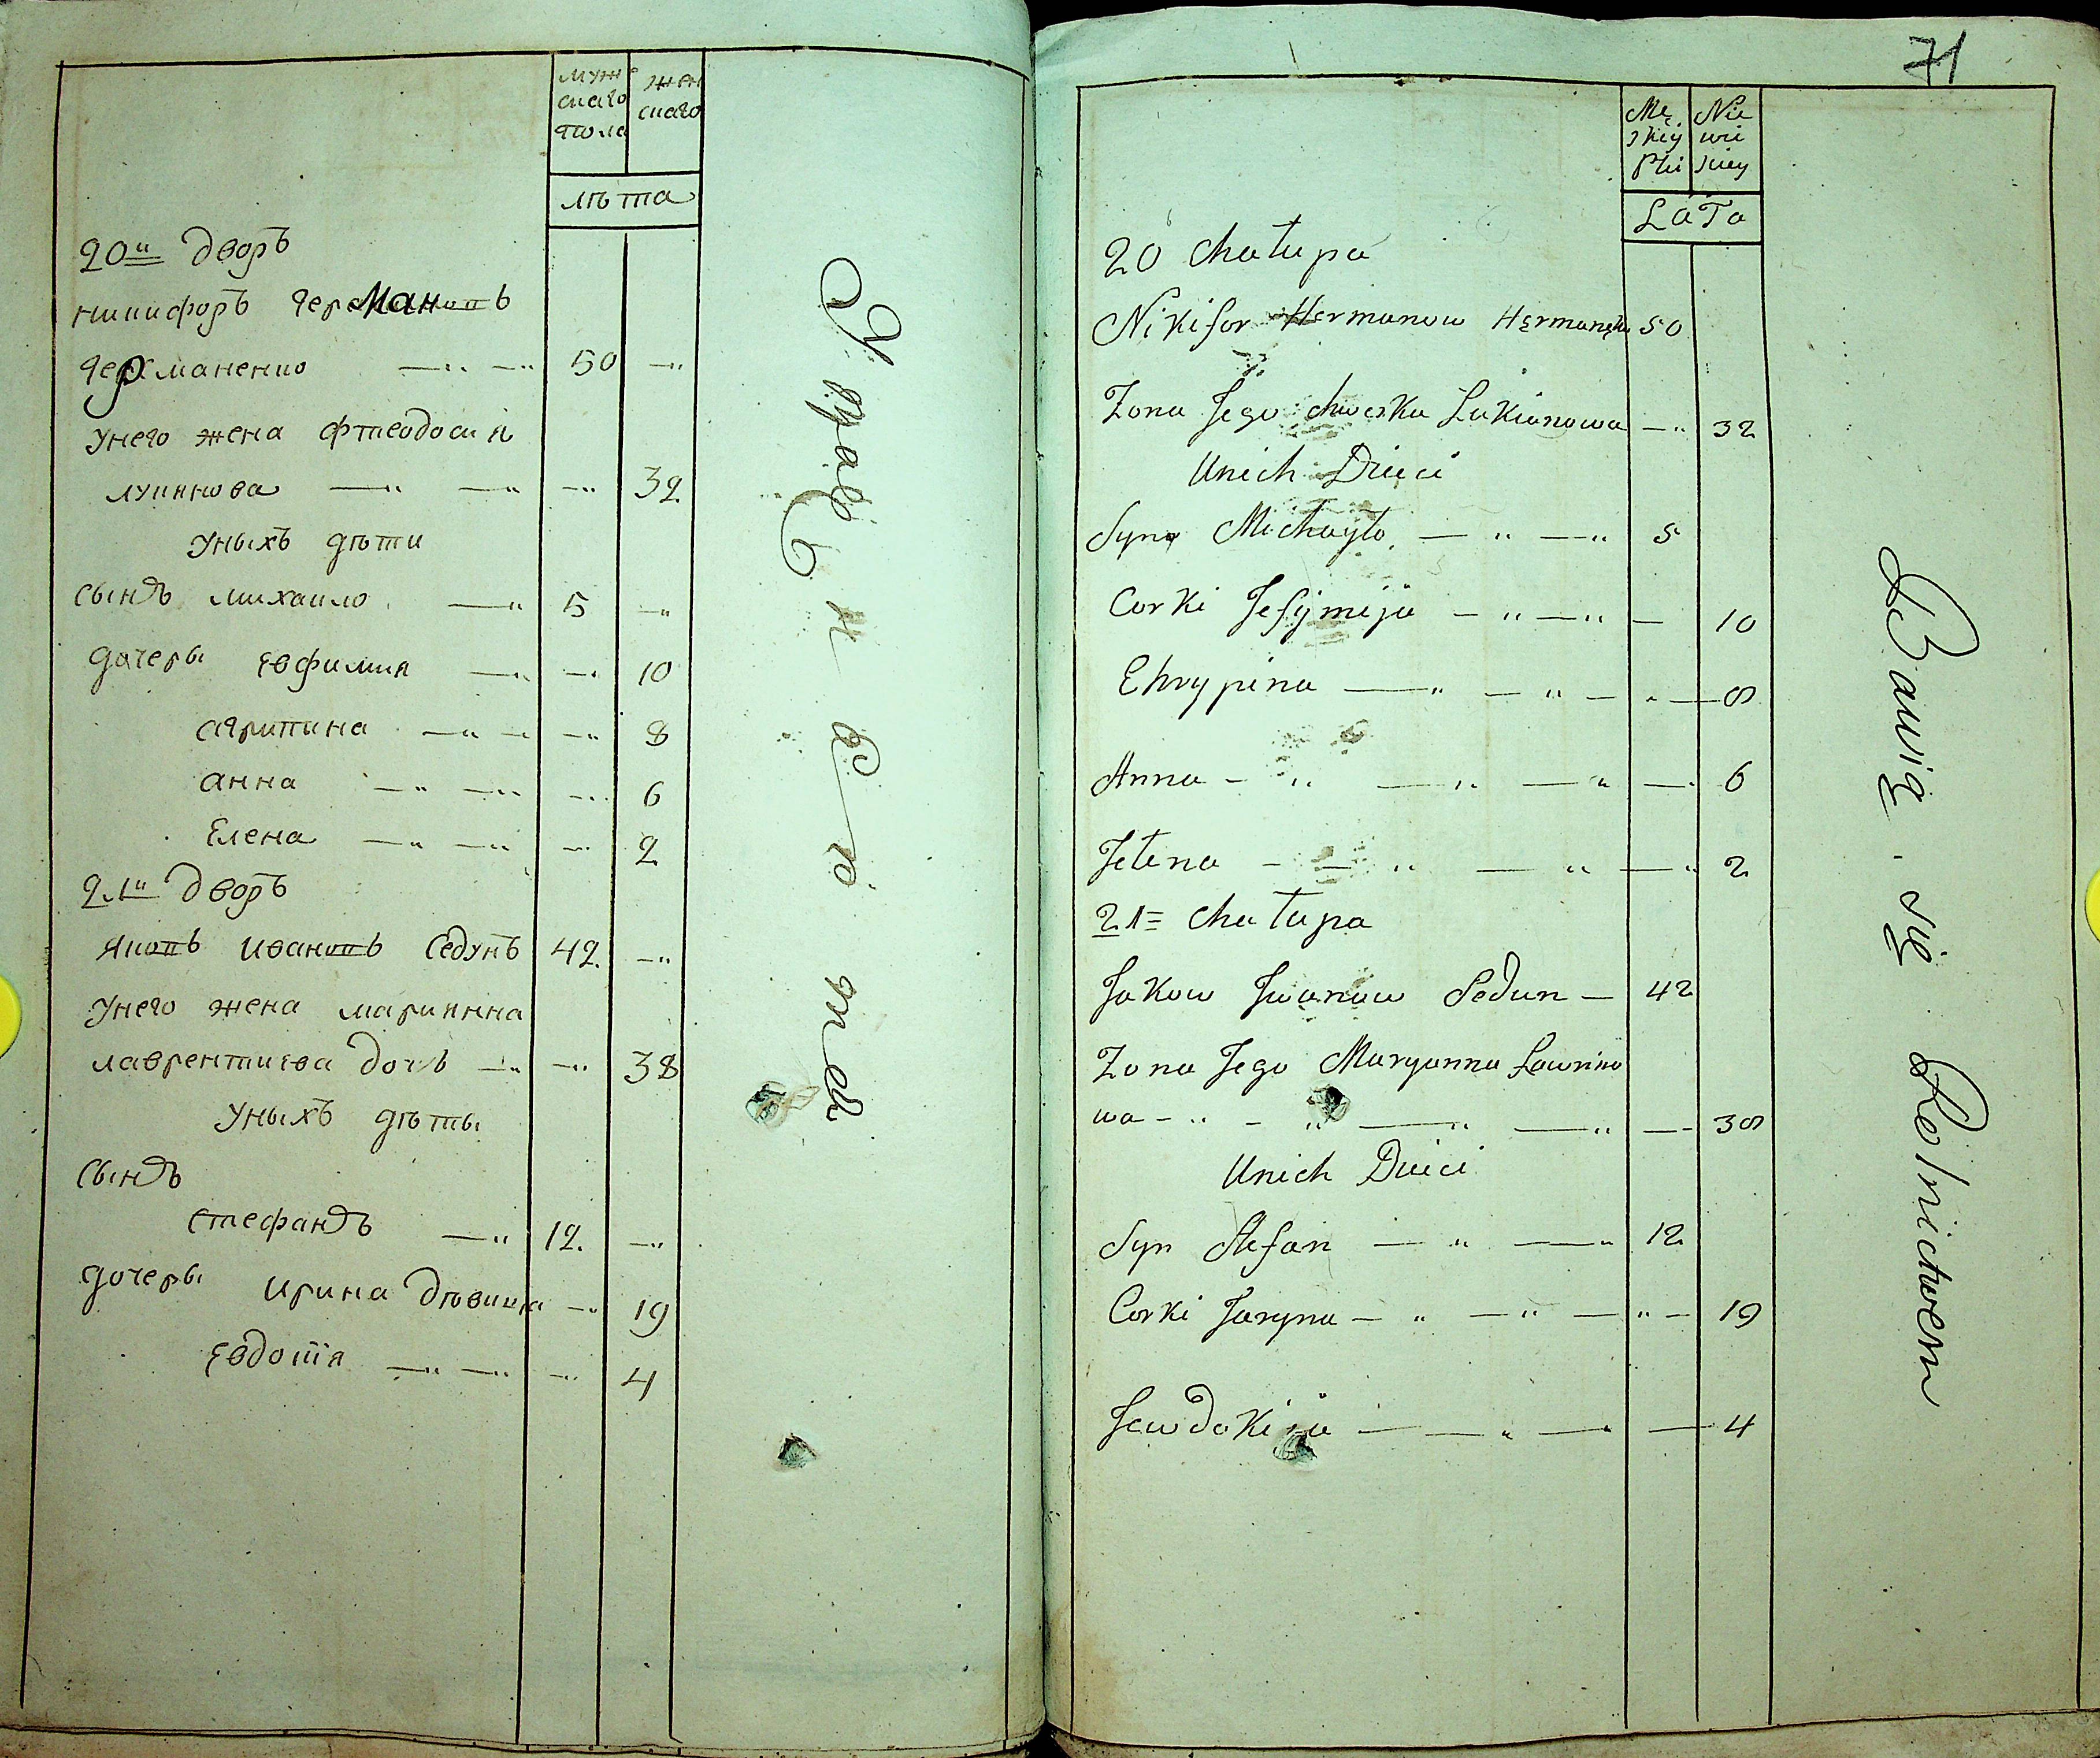 муж
скаго
пола
жен
скаго
лѣта
20й дворъ
никифоръ германовъ
германенко —„ —„ 50 —„
унего жена фтеодосия
лукиянова —„ —„ —„ 32
уныхъ дѣти
сынъ михаило —„ 5 —„
дочеры евфимия —„ —„ 10
агрипина —„ — —„ 8
анна —„ —„ —„ 6
Елена —„ —„ —„ 2
21й дворъ
яковъ ивановъ седунъ 42 —„
унего жена марияна
лаврентиева дочь —„ —„ 38
уныхъ дѣты
сынъ
стефанъ —„ 12 —„
дочеры ирина дѣвица —„ 19
Евдокия —„ —„ —„ 4
71
Mę
skiey
Płci
Nie
wie
sciey
LaTa
20 chałupa
Nikifor Hermanow Hermanęko 50
Zona Jego chweska Łukianowa —„ 32
Unich Dzieci
Syn Michayło — „ —„ 5
Corki Jefijmija — „ —„ — 10
Ehrypina —„ — „ — „ — 8
Anna — „ —„ —„ —„ 6
Jełena — — „ — „ —„ 2
21= chałupa
Jakow Jwanow Sedun — 42
Zona Jego Maryanna Ławrino
wa — „ — „ —„ —„ — 38
Unich Dzieci
Syn Stefan — „ —„ 12
Corki Jaryna — „ —„ — „ — 19
Jewdokija — — „ —„ — 4
Bawią się Rolnictwem